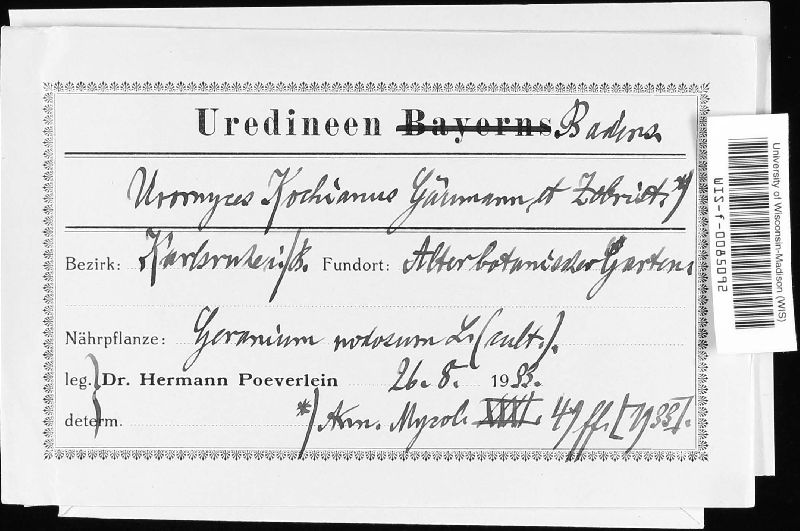 Uredineen Bayerns Badens.
Uromyces Kochianus Gäumann et *)
Bezirk: Karlsruhe i/B. Fundort: Alter botanischer Garten.
Nährpflanze: Geranium nodosum L. (cult.).
leg. Dr. Hermann Poeverlein 26. 8. 1933.
determ. *) Ann. Mycol. XXXI. 49 ff. [1933].
University of Wisconsin-Madison (WIS)
WIS-f-0085092